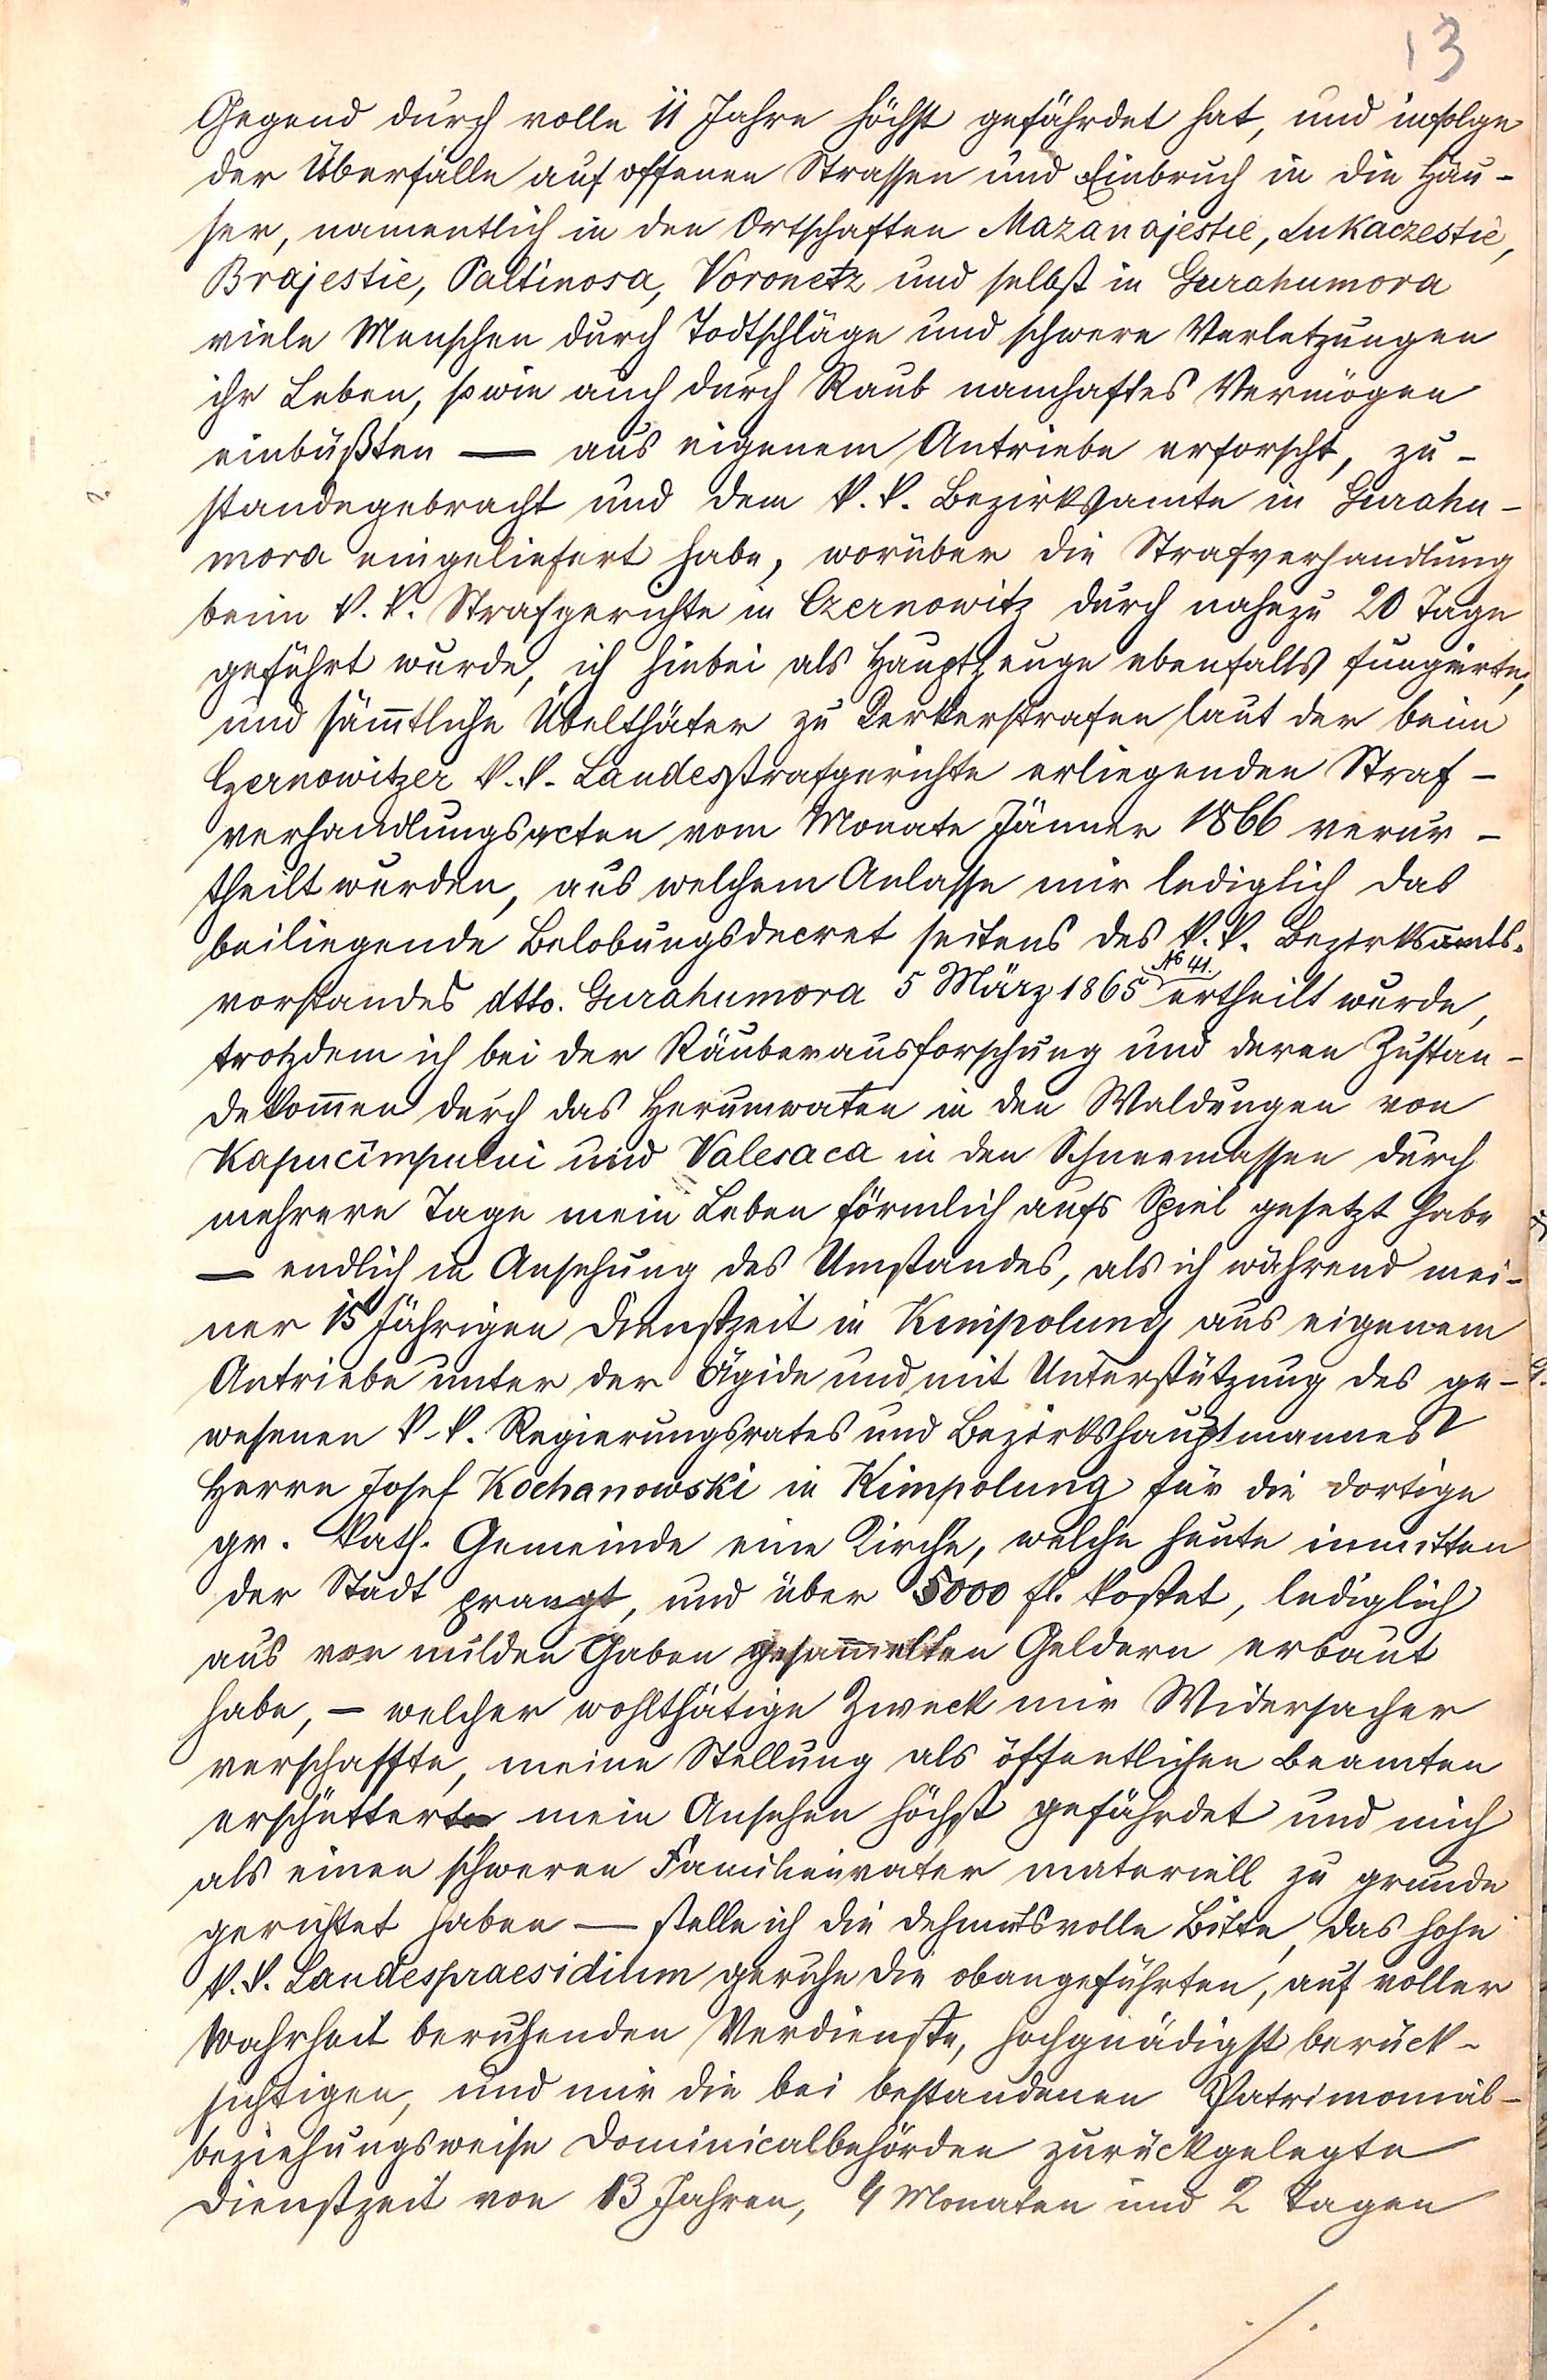 13
Gegend durch volle 11 Jahre höchst gefährdet hat, und infolge
der Überfälle auf offenen Strassen und Einbruch in die Häu-
ser, namentlich in den Ortschaften Mazanajestie, Lukaczestie,
Brajestie, Paltinosa, Voronetz und selbst in Gurahumora
viele Menschen durch Todtschläge und schwere Verletzungen
ihr Leben, sowie auch durch Raub namhaftes Vermögen
einbüßten — aus eigenem Antriebe erforscht, zu-
standegebracht und dem k. k. Bezirksamte in Gurahu-
mora eingeliefert habe, worüber die Strafverhandlung
beim k. k. Strafgerichte in Czernowitz durch nahezu 20 Tage
geführt wurde, ich hiebei als Hauptzeuge ebenfalls fungirte,
und sämtliche Übelthäter zu Kerkerstrafen laut der beim
Czernowitzer k. k. Landesstrafgerichte erliegenden Straf-
verhandlungsacten vom Monate Jänner 1866 verur-
theilt wurden, aus welchem Anlasse mir lediglich das
beiliegende Belobungsdecret seitens des k. k. Bezirksamts-
vorstandes dtto. Gurahumora 5 März 1865 No 41. ertheilt wurde,
trotzdem ich bei der Räuberausforschung und deren Zustan-
dekommen durch das Herumwaten in den Waldungen von
Kapucimpului und Valesaca in den Schneemassen durch
mehrere Tage mein Leben förmlich aufs Spiel gesetzt habe
— endlich in Ansehung des Umstandes, als ich während mei-
ner 15 jährigen Dienstzeit in Kimpolung aus eigenem
Antriebe unter der Ägide und mit Unterstützung des ge-
wesenen k. k. Regierungsrates und Bezirkshauptmannes
Herrn Josef Kochanowski in Kimpolung für die dortige
gr. kath. Gemeinde eine Kirche, welche heute inmitten
der Stadt prangt, und über 5000 fl. kostet, lediglich
aus von milden Gaben gesammelten Geldern erbaut
habe, – welcher wohlthätige Zweck mir Widersacher
verschaffte, meine Stellung als öffentlichen Beamten
erschüttert mein Ansehen höchst gefährdet und mich
als einen schweren Familienvater materiell zu grunde
gerichtet haben — stelle ich die dehmutsvolle Bitte, das hohe
k. k. Landespraesidium geruhe die obangeführten, auf voller
Wahrheit beruhenden Verdienste, hochgnädigst berück-
sichtigen, und mir die bei bestandenen Patrimonial-
beziehungsweise Dominicalbehörden zurückgelegte
Dienstzeit von 13 Jahren, 4 Monaten und 2 Tagen
./.